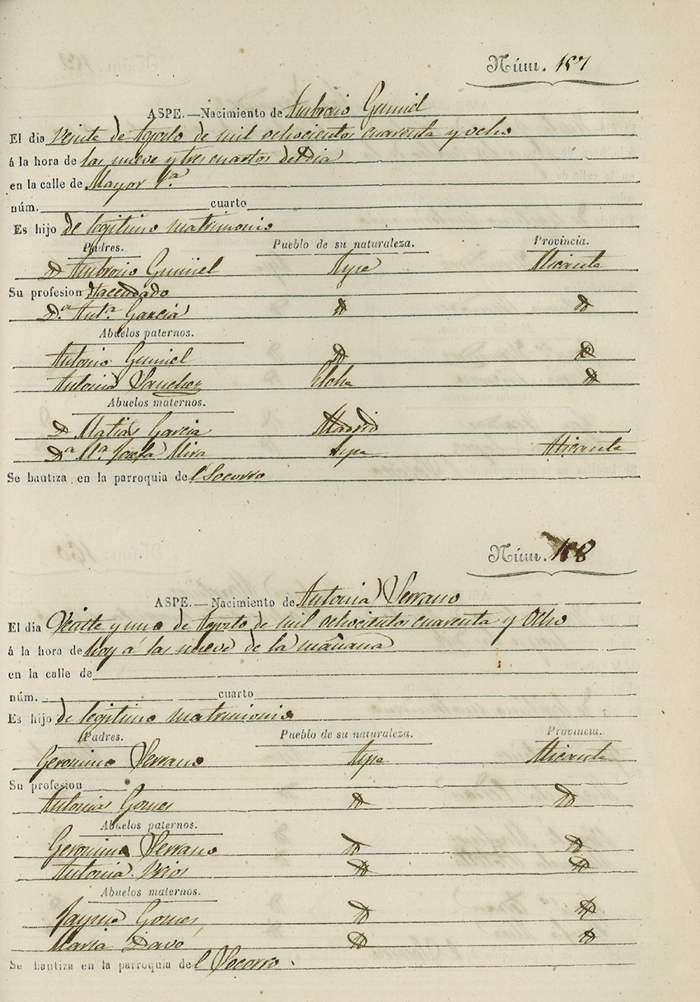 Núm. 187
ASPE.—Nacimiento de Ambrosio Gumiel
El dia Veinte de Agosto de mil ochocientos cuarenta y ocho
á la hora de las nueve y tres cuartos del Dia
en la calle de Mayor
núm. cuarto
Es hijo de legitimo matrimonio
Padres. Pueblo de su naturaleza. Provincia.
Dn Ambrosio Gumiel Aspe Alicante
Su profesion Hacendado
Da. Anta. Garcia
Abuelos paternos.
Antonio Gumiel
Antonia Sanchez Elche
Abuelos maternos.
Dn Matias Garcia Madrid
Da Ma. Josefa Mira Aspe Alicante
Se bautiza en la parroquia del Socorro
Núm. 188
ASPE.—Nacimiento de Antonia Serrano
El dia Veinte y uno de Agosto de mil ochocientos cuarenta y Ocho
á la hora de hoy á las nueve de la mañana
en la calle de
núm. cuarto
Es hijo de legitimo matrimonio
Padres. Pueblo de su naturaleza. Provincia.
Geronimo Serrano Aspe Alicante
Su profesion
Antonia Gomes
Abuelos paternos.
Geronimo Serrano
Antonia
Abuelos maternos.
Jayme Gomes
Maria Davó
Se bautiza en la parroquia del Socorro.